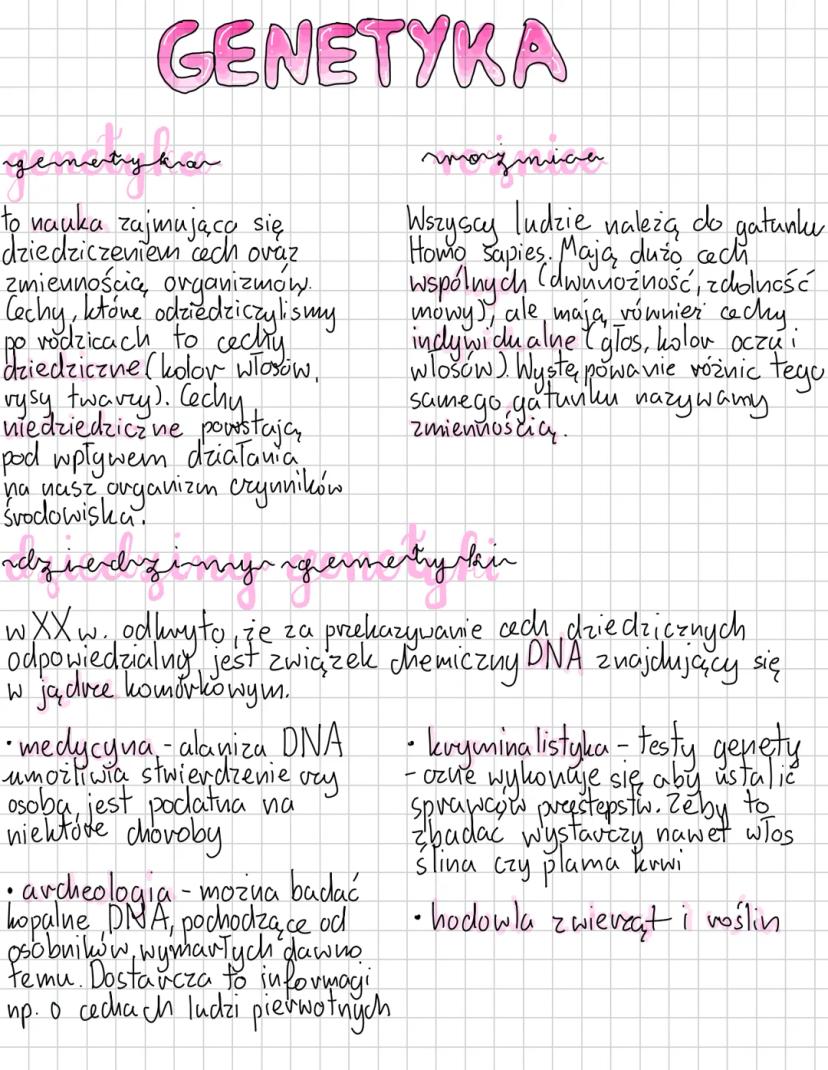 GENETYKA
genetyka
to nauka zajmująca się
dziedziczeniem cech oraz
zmiennością organizmów.
Cechy, które odziedziczylismy
po rodzicach to cechy
dziedziczne (kolor włosów,
rysy twarzy). Cechy
niedziedziczne powstają
pod wpływem działania
na nasz organizm czynników
środowiska.
rożnice
Wszyscy ludzie należą do gatunku
Homo Sapies. Mają dużo cech
wspólnych (dwunożność, zdolność
mowy), ale mają również cechy
indywidualne (głos, kolor oczu i
włosów). Występowanie różnic tego
samego gatunku nazywamy
zmiennością.
dziedziny genetyki
w XX w. odkryto, że za przekazywanie cech dziedzicznych
odpowiedzialny jest związek chemiczny DNA znajdujący się
w jądrze komórkowym.
• medycyna - alaniza DNA
umożliwia stwierdzenie czy
osoba jest podatna na
niektóre choroby
• archeologia - można badać
kopalne DNA, pochodzące od
osobników wymarłych dawno
temu. Dostarcza to informagi
np. o cechach ludzi pierwotnych
• kryminalistyka - testy genety
- czne wykonuje się aby ustalić
sprawców przestępstw. Żeby to
zbadać wystarczy nawet włos
ślina czy plama krwi
• hodowla zwierząt i roślin